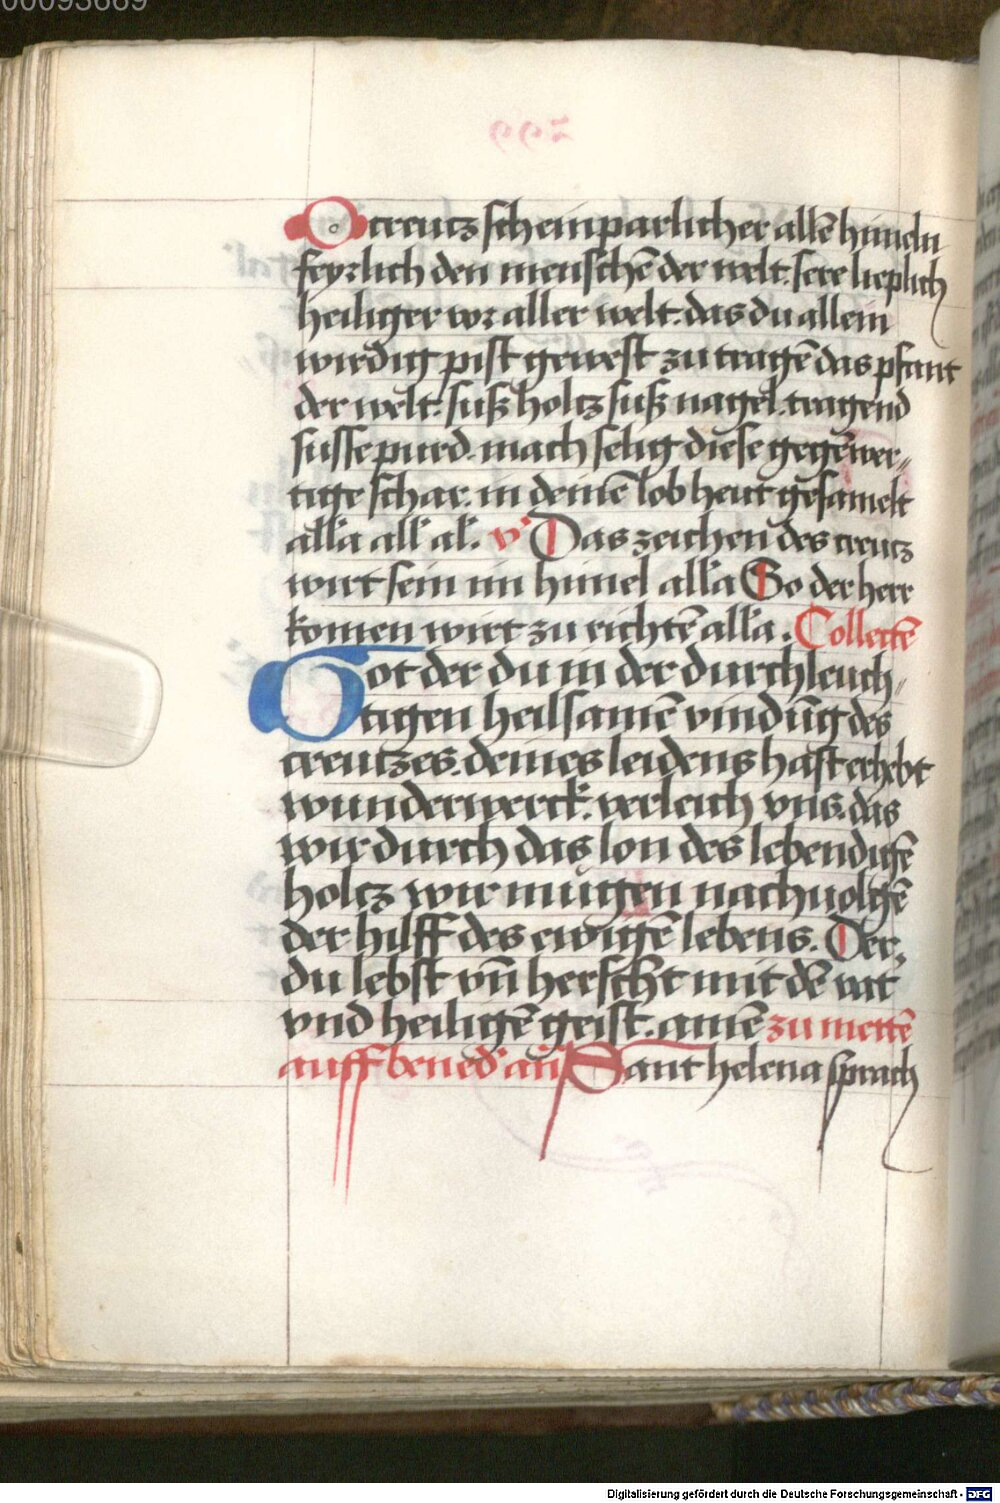 O creutz scheinparlicher allē himeln
feyrlich den menschē der welt. sere lieplich
heiliger wz aller welt. das du allein
wirdig pist gewest zu tragē das pfant
der welt. suß holtz suß nagel. tragend
susse purd. mach selig diese gegēwer„
tige schar. in deinē lob heut gesamelt
all'a all' al'. v' Das zeichen des creutz
wirt sein im himel all'a So der herr
komen wirt zu richtē all'a. Collectē
Got der du in der durchleuch„
tigen heilsamē vindūg des
creutzes. deines leidens hast erhebt
wunderwerck. verleich vns. das
wir durch das lon des lebendigē
holtz wir mügen nachuolgē
der hilff des ewigē lebens. Der„
du lebst vn̄ herschst mit dē vat'
vnd heiligē geist. amē zu mettē
auff bened' an̄ Sant helena sprach
Digitalisierung gefördert durch die Deutsche Forschungsgemeinschaft - DFG